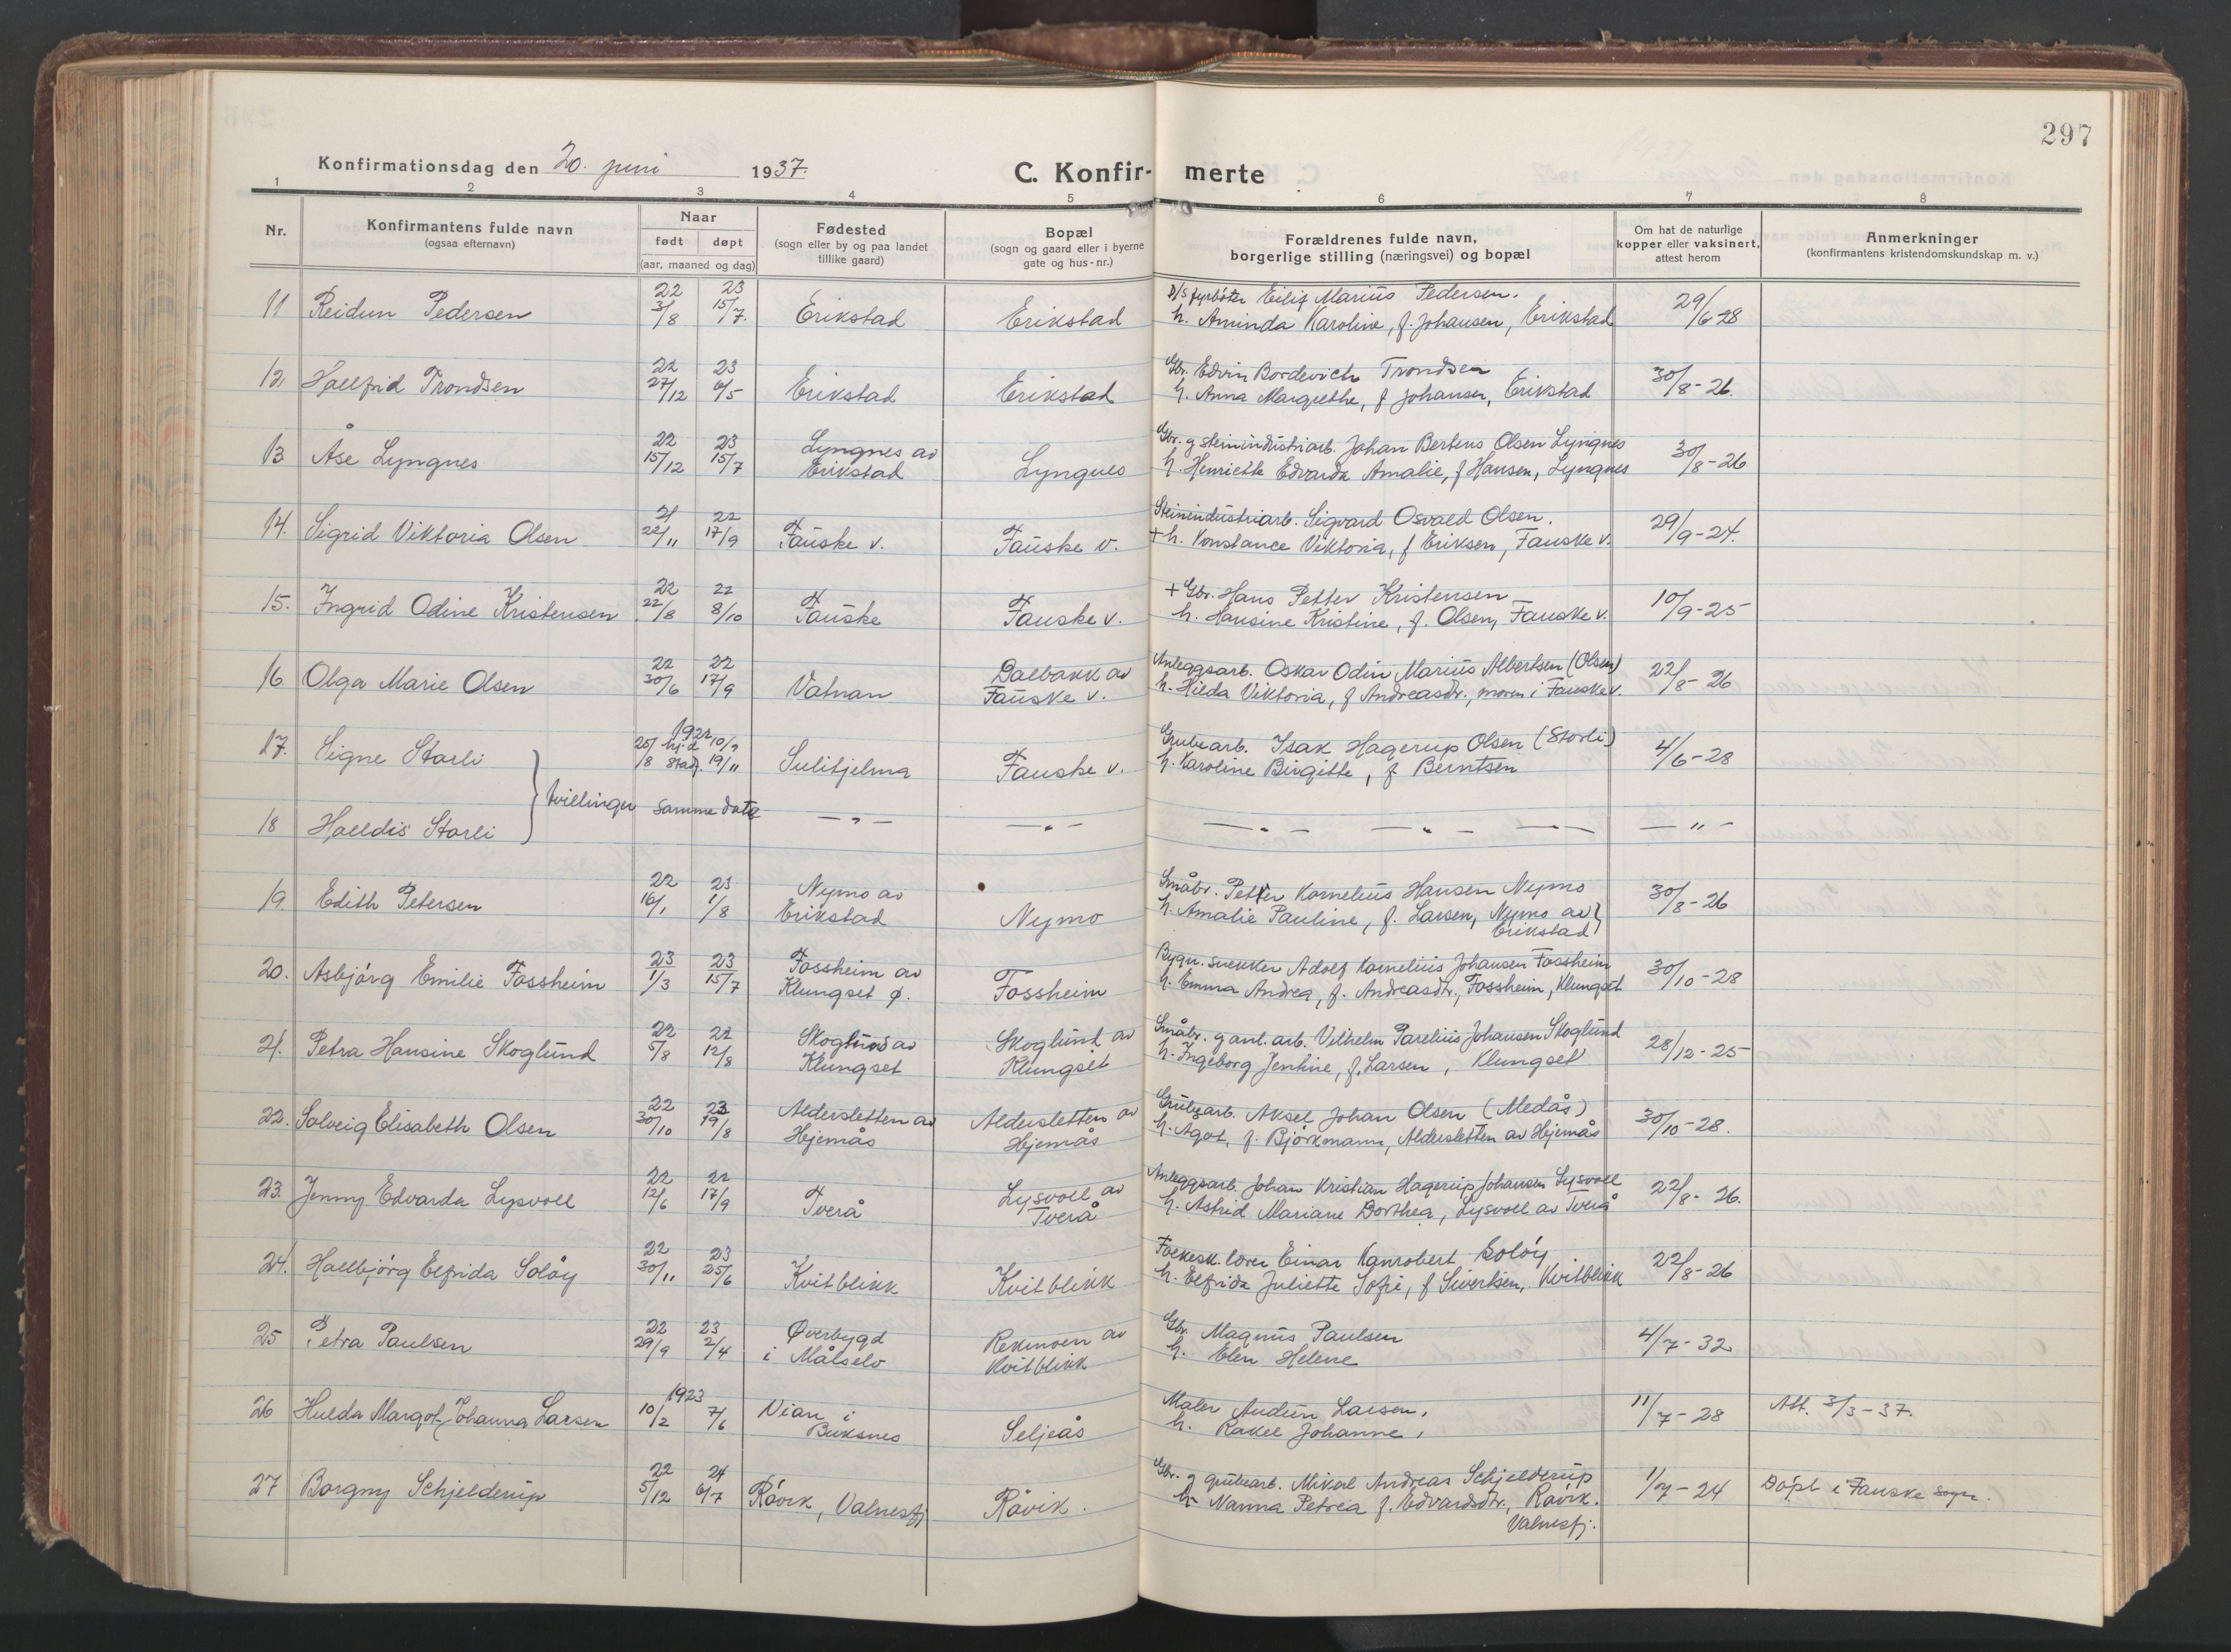 297
Konfirmationsdag den 20. juni 1937.
C. Konfir- merte
1 2 3 4 5 6 7 8
Nr.
Konfirmantens fulde navn
(ogsaa efternavn)
Naar
født døpt
(aar, maaned og dag)
Fødested
(sogn eller by og paa landet
tillike gaard)
Bopæl
(sogn og gaard eller i byerne
gate og hus-nr.)
Forældrenes fulde navn,
borgerlige stilling (næringsvei) og bopæl
Om hat de naturlige
kopper eller vaksinert,
attest herom
Anmerkninger
(konfirmantens kristendomskundskap m. v.)
22 23 D/S fyrbøter Eilif Marius Pedersen.
11 Reidun Pedersen 3/8 15/7. Erikstad Erikstad h. Aminda Karoline, f. Johansen, Erikstad 29/6 28
22 23 Gbr. Edvin Bordevich Trondsen
12. Hallfrid Trondsen 27/12 6/5 Erikstad Erikstad h. Anna Margrethe, f Johansen, Erikstad 30/8-26.
22 23 Lyngnes av Gbr. g steinindustriarb. Johan Bertens Olsen Lyngnes
13 Åse Lyngnes 15/12 15/7 Erikstad Lyngnes h. Henriette Edvarda Amalie, f Hansen, Lyngnes 30/8-26
21 22 Steinindustriarb. Sigvard Osvald Olsen.
14. Sigrid Viktoria Olsen 22/11 17/9 Fauske v. Fauske v. + h. Konstance Viktoria, f Eriksen, Fauske v. 29/9-24.
22 22 + Gbr. Hans Petter Kristensen
15. Ingrid Odine Kristensen 22/8 8/10 Fauske Fauske v. h. Hansine Kristine, f. Olsen, Fauske v. 10/9-25
22 22 Dalbakk av Anleggsarb. Oskar Odin Marius Albertsen (Olsen)
16 Olga Marie Olsen 30/6 17/9 Vatnan Fauske v. h. Hilda Viktoria, f Andreasdr., moren i Fauske v. 22/8-26
1922 Grubearb. Isak Hagerup Olsen (Storli)
17. Signe Storli 25/8 hj.d 10/9 stadf. 19/11 Sulitjelma Fauske v. h. Karoline Birgitte, f Berntsen 4/6-28
tvillinger
18 Halldis Storli samme data — " — — " — — " — — " — — " —
22 23 Nymo av Småbr. Petter Kornelius Hansen Nymo
19 Edith Petersen 16/1 1/8 Erikstad Nymo h. Amalie Pauline, f. Larsen, Nymo av Erikstad 30/8-26
23 23 Fossheim av Bygn. snekker Adolf Kornelius Johansen Fossheim
20. Asbjørg Emilie Fossheim 1/3 15/7 Klungset ø. Fossheim h. Emma Andrea, f. Andreasdtr., Fossheim, Klungset 30/10-28
22 22 Skoglund av Skoglund av Småbr. g anl. arb. Vilhelm Parelius Johansen Skoglund
21. Petra Hansine Skoglund 5/8 12/8 Klungset Klungset h. Ingeborg Jentine, f. Larsen, Klungset 28/12-25
22 23 Aldersletten av Aldersletten av Grubearb. Aksel Johan Olsen (Medås)
22. Solveig Elisabeth Olsen 30/10 19/8 Hjemås Hjemås h. Agot, f. Björkmann, Aldersletten av Hjemås 30/10-28.
22 22 Lysvoll av Anleggsarb. Johan Kristian Hagerup Johansen Lysvoll
23. Jenny Edvarda Lysvoll 12/6 17/9 Tverå Tverå h. Astrid Mariane Dorthea, Lysvoll av Tverå 22/8-26.
22 23 Folkesk. lærer Einar Kanrobert Soløy
24. Hallbjørg Elfrida Soløy 30/11 25/6 Kvitblikk Kvitblikk h. Elfrida Juliette Sofie, f Sivertsen, Kvitblikk 22/8-26
22 23 Øverbygd Rekmoen av Gbr. Magnus Paulsen
25 Petra Paulsen 29/9 2/4 i Målselv Kvitblikk h. Elen Helene 4/7-32
1923 Maler Audun Larsen,
26 Hulda Margot Johanna Larsen 10/2 7/6 Vian i Buksnes Seljeås h. Rakel Johanne, 11/7-28 Att. 3/3-37.
22 24 Gbr. g grubearb. Mikal Andreas Schjelderup
27 Borgny Schjelderup 5/12 6/7 Røvik, Valnesfj Røvik. h. Nanna Petrea f. Edvardsdtr., Røvik. 1/7-24 Døpt i Fauske sogn.
Valnesfj.